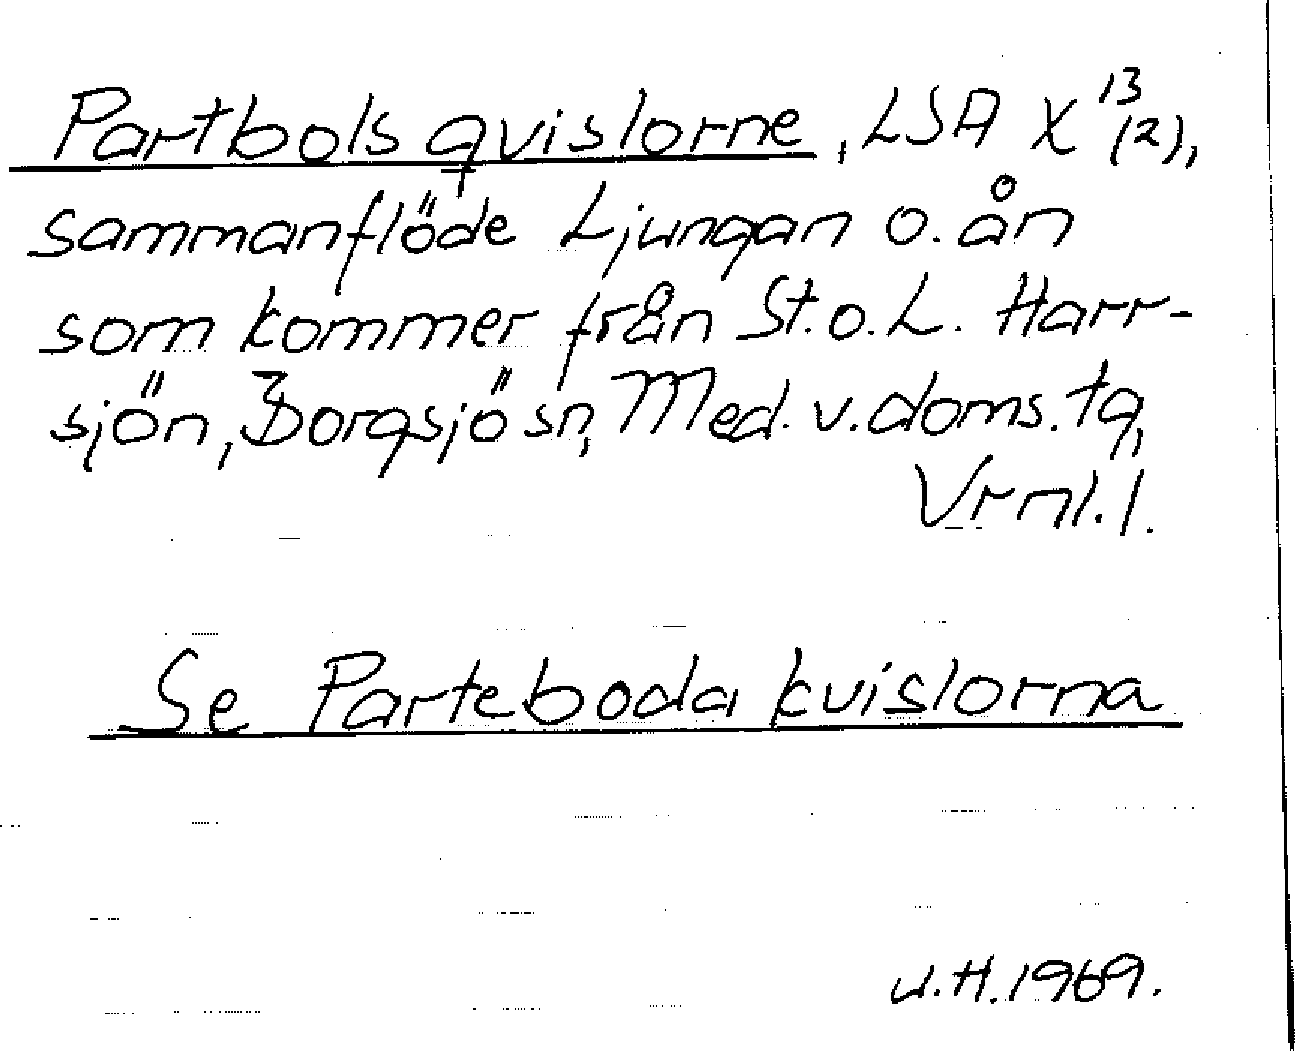 Partbols qvislorne, LSA X 13/(2),
sammanflöde Ljungan o. ån
som kommer från St. o. L. Harr-
sjön, Borgsjö sn, Med. v. doms. tg,
Vrnl. l.
Se Parteboda kvislorna
U.H. 1969.